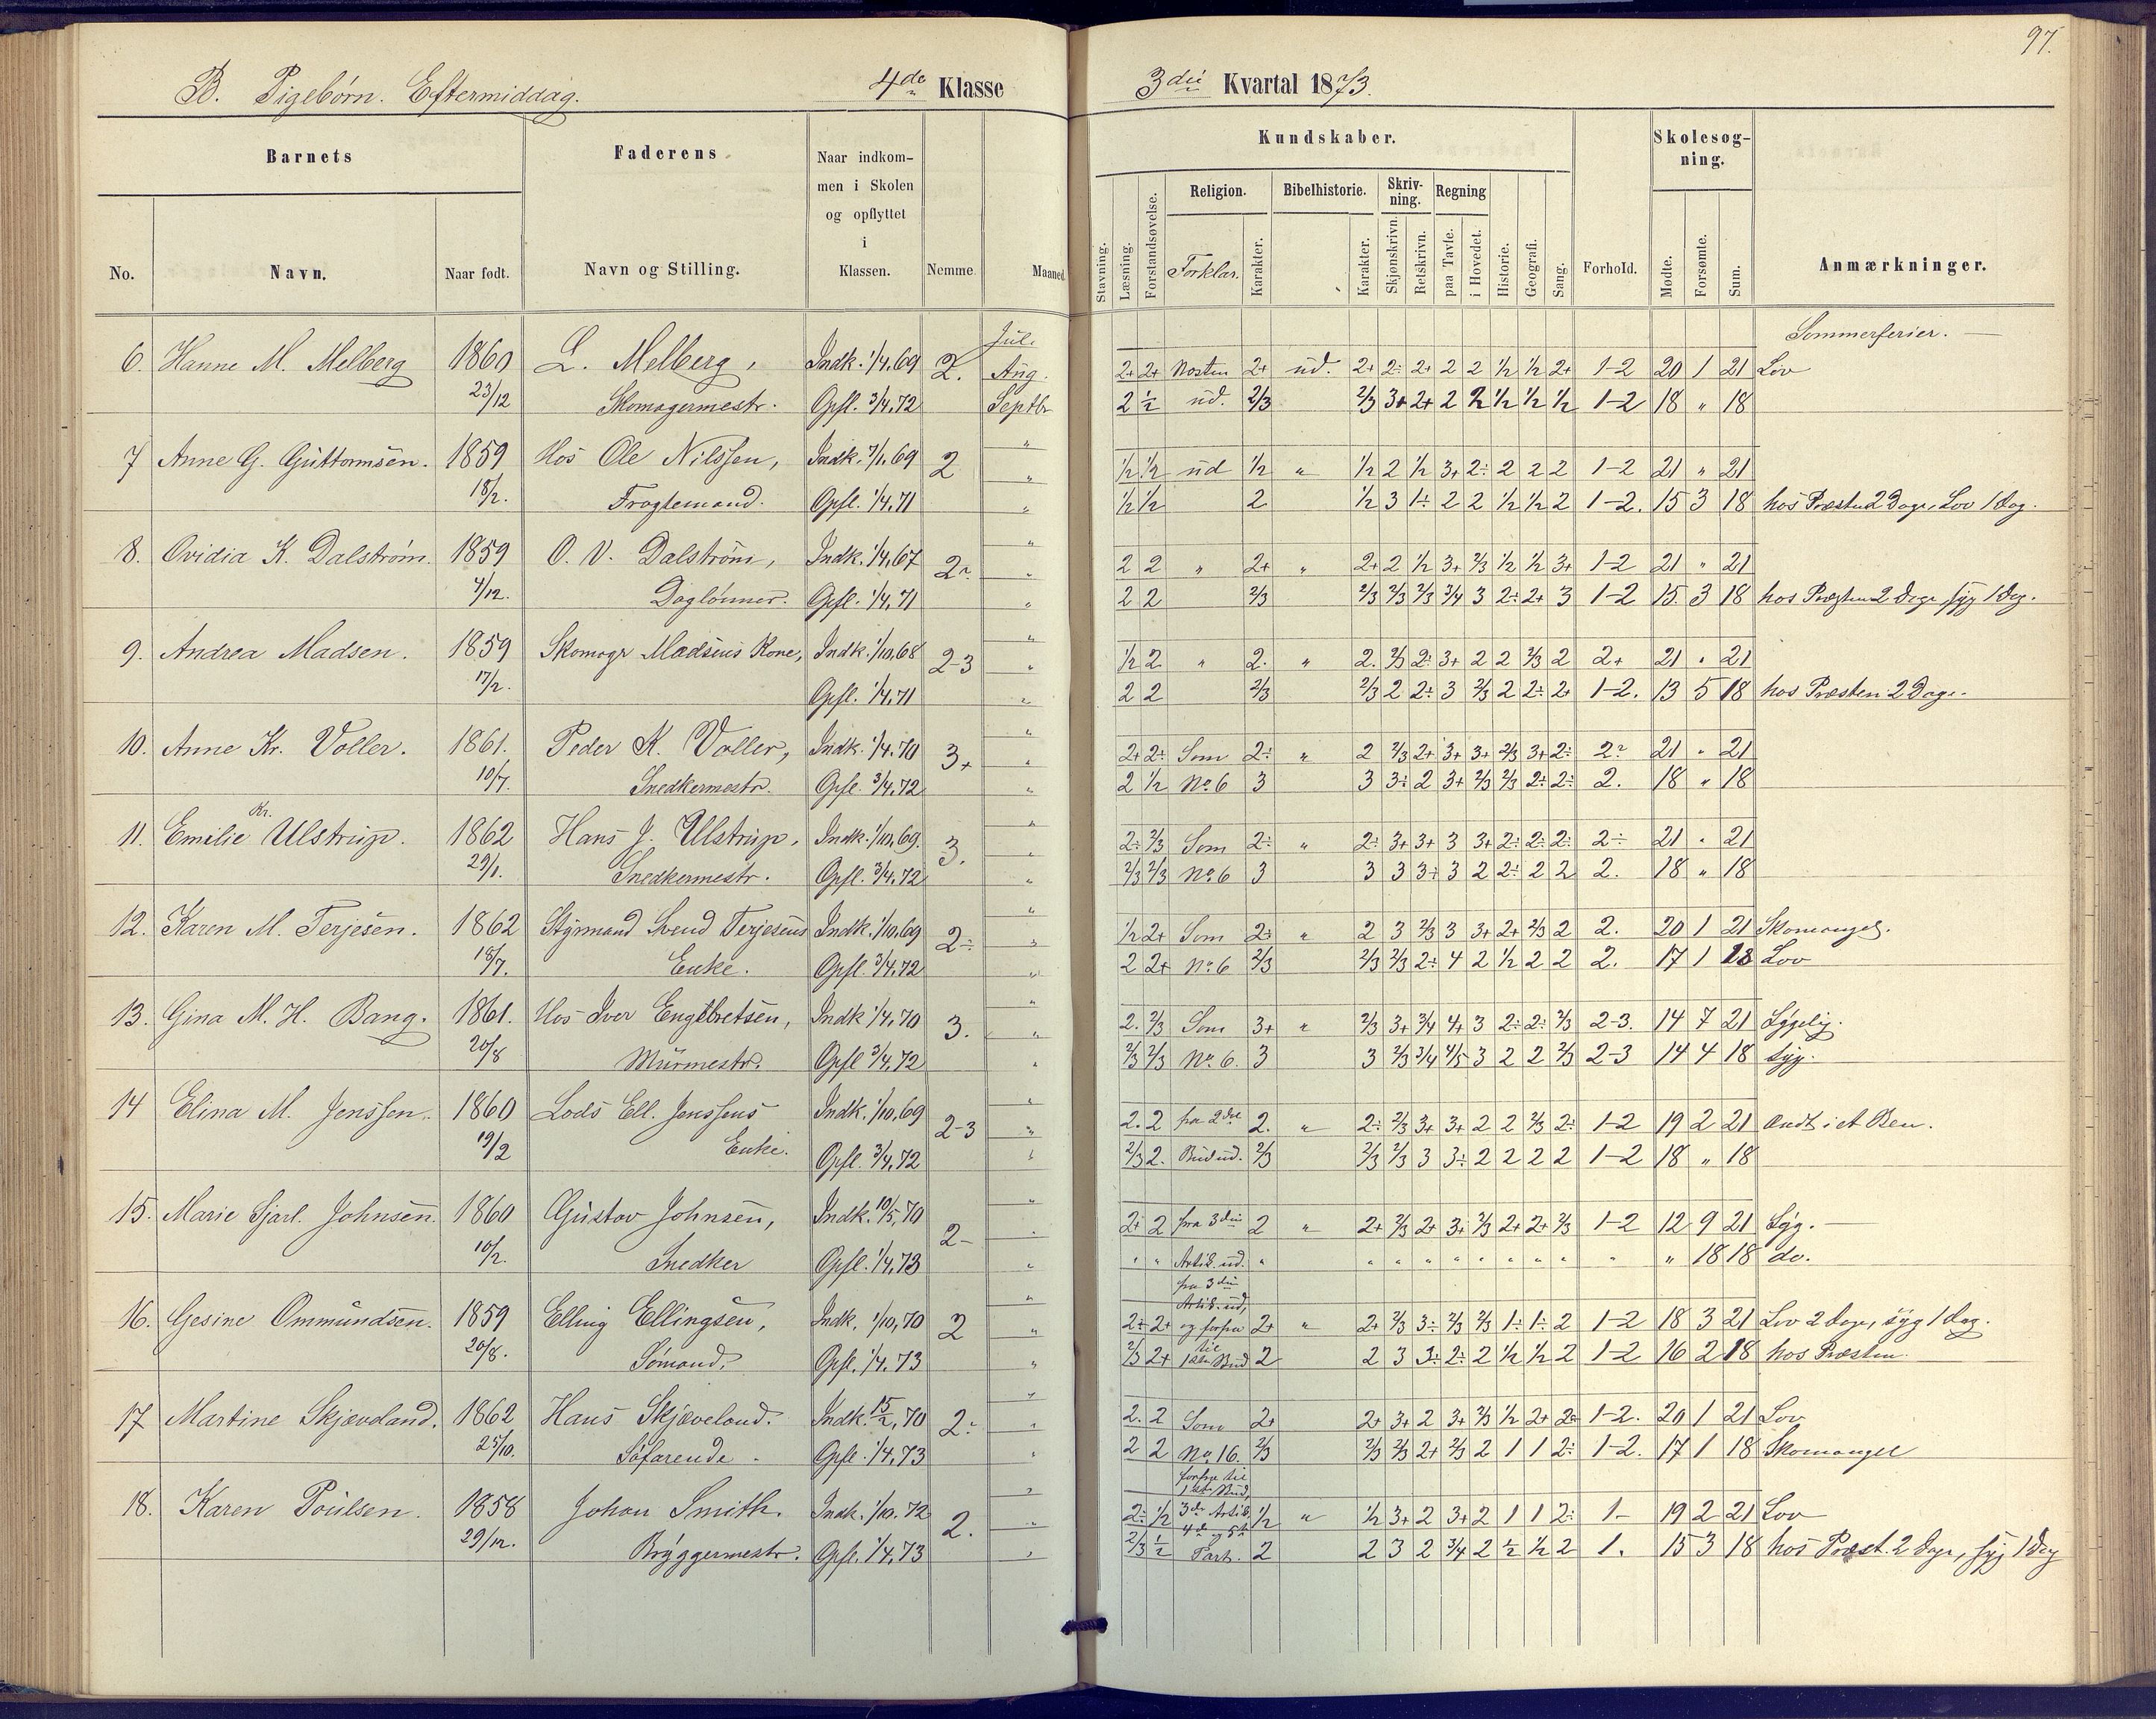 97.
B. Pigebørn. Eftermiddag. 4de Klasse 3die Kvartal 1873.
Barnets Faderens Naar indkommen i Skolen og opflyttet i Klassen. Nemme. Maaned
No. Navn. Naar født. Navn og Stilling.
Kundskaber. Forhold. Skolesøgning. Anmærkninger.
Stavning. Læsning. Forstandsøvelse. Religion. Forklar. Karakter. Bibelhistorie. Karakter. Skrivning. Skjønskrivn. Retskrivn. Regning paa Tavle. i Hovedet. Historie. Geografi. Sang. Mødte. Forsømte. Sum.
Juli Sommerferier. —
6. Hanne M. Melberg 1860 L. Melberg, Indk. 1/4.69 2. Aug. 2+ 2+ 2+ ud. 2+ 2÷ 2+ 2 2 1/2 1/2 2+ 1-2 20 1 21 Lov
23/12 Skomagermestr. Opfl. 3/4.72 Septbr 2 1/2 ud. 2/3 2/3 3+ 2+ 2 2 1/2 1/2 1/2 1-2 18 " 18
7 Anne G. Guttormsen. 1859 Hos Ole Nilssen, Indk. 7/1.69 2 " 1/2 1/2 ud 1/2 " 1/2 2 1/2 3+ 2÷ 2 2 2 1-2 21 " 21
18/2. Fragtemand. Opfl. 1/4.71 " 1/2 1/2 2 1/2 3 1÷ 2 2 1/2 1/2 2 1-2. 15 3 18 hos Præsten 2 Dage, Lov 1 Dag.
8. Ovidia K. Dalstrøm. 1859 O. V. Dalstrøm, Indk. 1/4.67 2÷ " 2 2 " 2+ " 2+ 2 1/2 3+ 2/3 1/2 1/2 3+ 1-2 21 " 21
4/12. Daglønner. Opfl. 1/4.71 " 2 2 2/3 2/3 2/3 2/3 3/4 3 2÷ 2+ 3 1-2 15. 3 18 hos Præsten 2 Dage, syg 1 Dag.
9. Andrea Madsen. 1859 Skomagr Madsens Kone, Indk. 1/10.68 2-3 " 1/2 2 " 2. " 2. 2/3 2÷ 3+ 2 2 2/3 2 2+ 21 " 21
17/2. Opfl. 1/4.71 " 2 2 2/3 2/3 2 2÷ 3 2/3 2 2÷ 2+ 1-2. 13 5 18 hos Præsten 2 Dage.
10. Anne Kr. Voller. 1861. Peder K. Voller, Indk. 1/4.70 3+ " 2+ 2÷ Som 2÷ " 2 2/3 2+ 3+ 3+ 2/3 3+ 2÷ 2÷ 21 " 21
10/7. Snedkermestr. Opfl. 3/4.72 " 2 1/2 No. 6 3 3 3÷ 2 3+ 2/3 2/3 2÷ 2÷ 2. 18 " 18
11. Emilie Kr. Ulstrup. 1862 Hans J. Ulstrup. Indk. 1/10.69. 3. " 2÷ 2/3 Som 2÷ " 2÷ 3+ 3+ 3 3+ 2÷ 2÷ 2÷ 2÷ 21 " 21
29/1. Snedkermestr. Opfl. 3/4.72 " 2/3 2/3 No. 6 3 3 3 3÷ 3 2 2÷ 2 2 2. 18 " 18
12. Karen M. Terjesen. 1862 Styrmand Svend Terjesens Indk. 1/10.69 2÷ " 1/2 2+ Som 2÷ " 2 3 2/3 3 3+ 2+ 2/3 2 2. 20 1 21 Skomangel.
18/7. Enke. Opfl. 3/4.72 " 2 2+ No. 6 2/3 2/3 2/3 2÷ 4 2 1/2 2 2 2. 17 1 18 Lov
13. Gina M. H. Bang. 1861. Hos Iver Engelbretsen, Indk 1/4.70 3. " 2. 2/3 Som 3+ " 2/3 3+ 3/4 4+ 3 2÷ 2÷ 2/3 2-3. 14 7 21 Sygelig.
20/8 Murmestr. Opfl 3/4.72 " 2/3 2/3 No. 6. 3 3 2/3 3/4 4/5 3 2 2 2/3 2-3 14 4 18 syg.
14 Elina M. Jenssen. 1860 Lods Ell. Jenssens Indk. 1/10.69 2-3 " 2. 2 fra 2det 2. " 2÷ 2/3 3+ 3+ 2 2 2/3 2÷ 1-2 19 2 21 Ondt i et Ben.
19/2 Enke. Opfl. 3/4.72 " 2/3 2. Bud ud. 2/3 2/3 2/3 3 3÷ 2 2 2 2 1-2 18 " 18
15. Marie Sjarl. Johnsen. 1860 Gustav Johnsen, Indk. 10/5.70 2- " 2÷ 2 fra 3die 2 " 2+ 2/3 2+ 3+ 2/3 2+ 2+ 2/3 1-2 12 9 21 Syg. —
10/2. Snedker Opfl. 1/4.73 " " " Artik. ud. " " " " " " " " " " " 18 18 do.
16. Gesine Ommundsen. 1859 Elling Ellingsen, Indk. 1/10.70 2 " 2÷ 2+ fra 3die Artik. ud, og forfra 2+ " 2+ 2/3 3÷ 2/3 2/3 1÷ 1÷ 2 1-2 18 3 21 Lov 2 Dage, syg 1 Dag.
20/8. Sømand. Opfl. 1/4.73 " 2/3 2+ til 1ste Bud 2 2 3 3÷ 2÷ 2 1/2 1/2 2 1-2 16 2 18 hos Præsten.
17 Martine Skjæveland. 1862 Hans Skjæveland. Indk. 15/2.70 2÷ " 2. 2 Som 2+ 2+ 3+ 2 3+ 2/3 1/2 2+ 2÷ 1-2. 20 1 21 Lov
25/10. Søfarende. Opfl. 1/4.73 " 2 2 No. 16. 2/3 2/3 2/3 2+ 2/3 2 1 1 2÷ 1-2. 17 1 18 Skomangel
18. Karen Poulsen. 1858 Johan Smith. Indk. 1/10.72 2. " 2÷ 1/2 forfra til 1ste Bud, 3die Artik. 1/2 " 1/2 3+ 2 3+ 2 1 1 2÷ 1- 19 2 21 Lov
29/12. Bryggermestr. Opfl. 1/4.73 " 2/3 1/2 4de og 5te Part. 2 2 3 2 3/4 2 1/2 1/2 2 1. 15 3 18 hos Præst. 2 Dage, syg 1 Dag